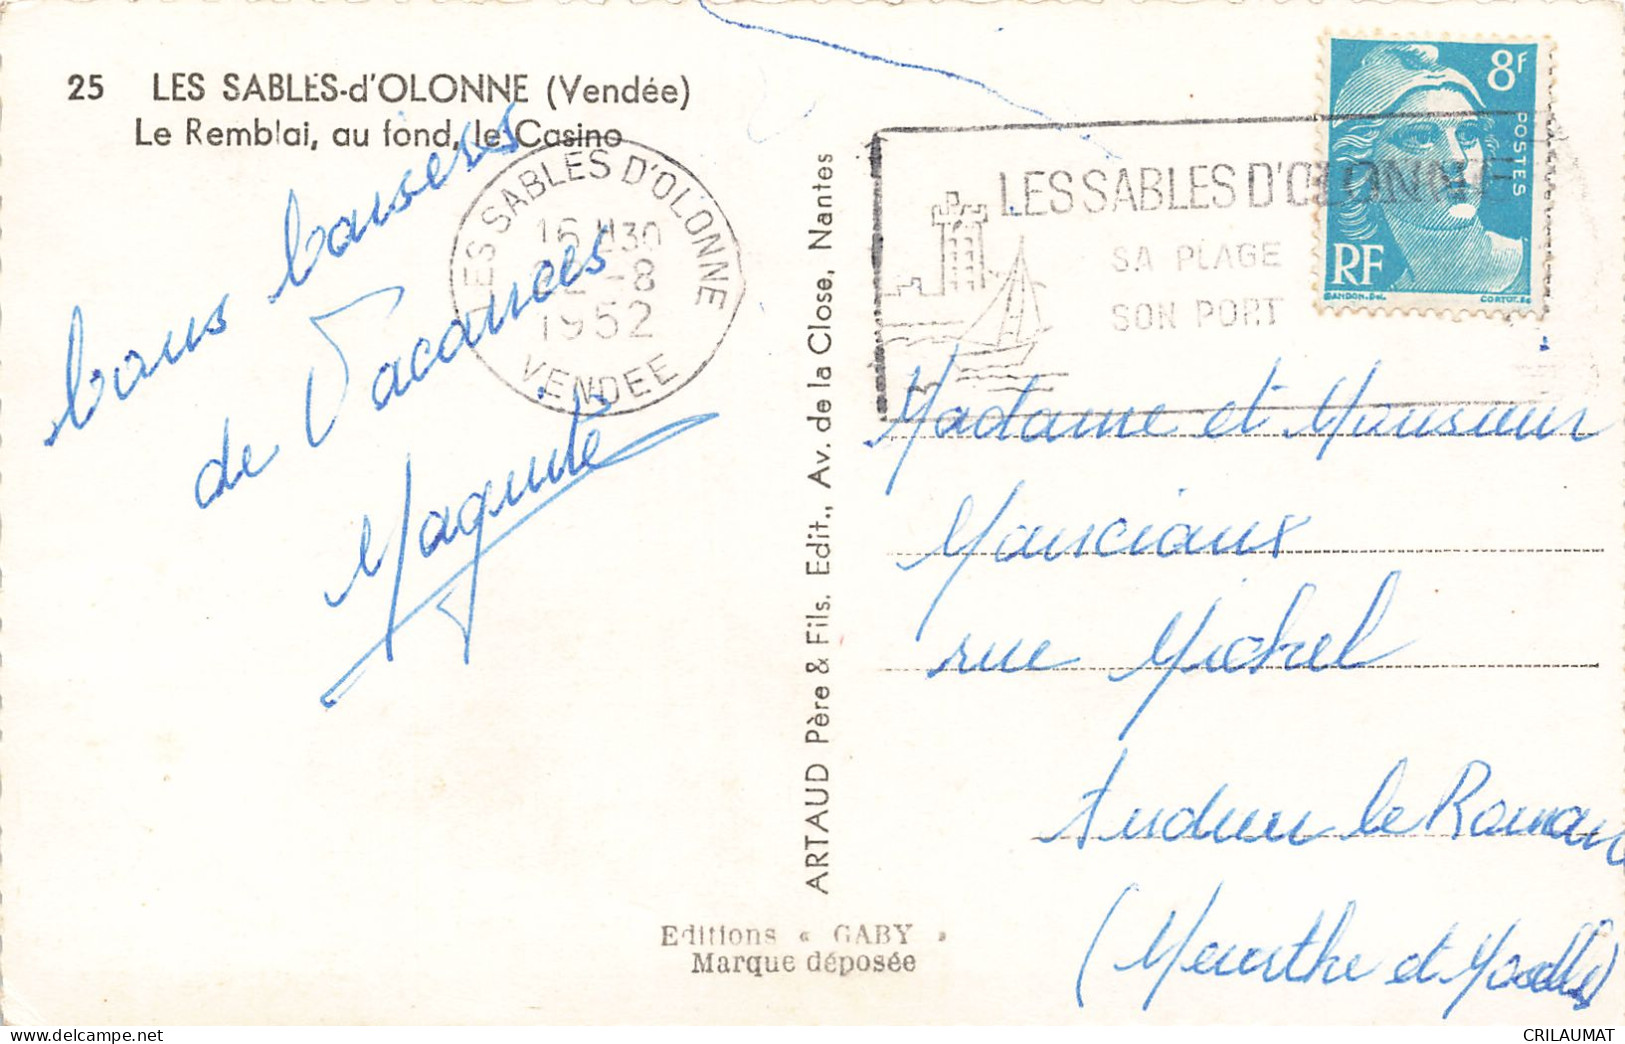 25 LES SABLES-d'OLONNE (Vendée)
Le Remblai, au fond, le Casino
bons baisers
de Vacances
LES SABLES D'OLONNE
16 H30
-8
1952
VENDEE
ARTAUD Père & Fils. Edit., Av. de la Close, Nantes
Editions « GABY »
Marque déposée
LES SABLES D'OLONNE
SA PLAGE
SON PORT
8F
POSTES
RF
GANDON.Del.
CORTOT.Sc
Madame et Monsieur
rue Michel
le Roman
(Meurthe et Moselle)
CRILAUMAT